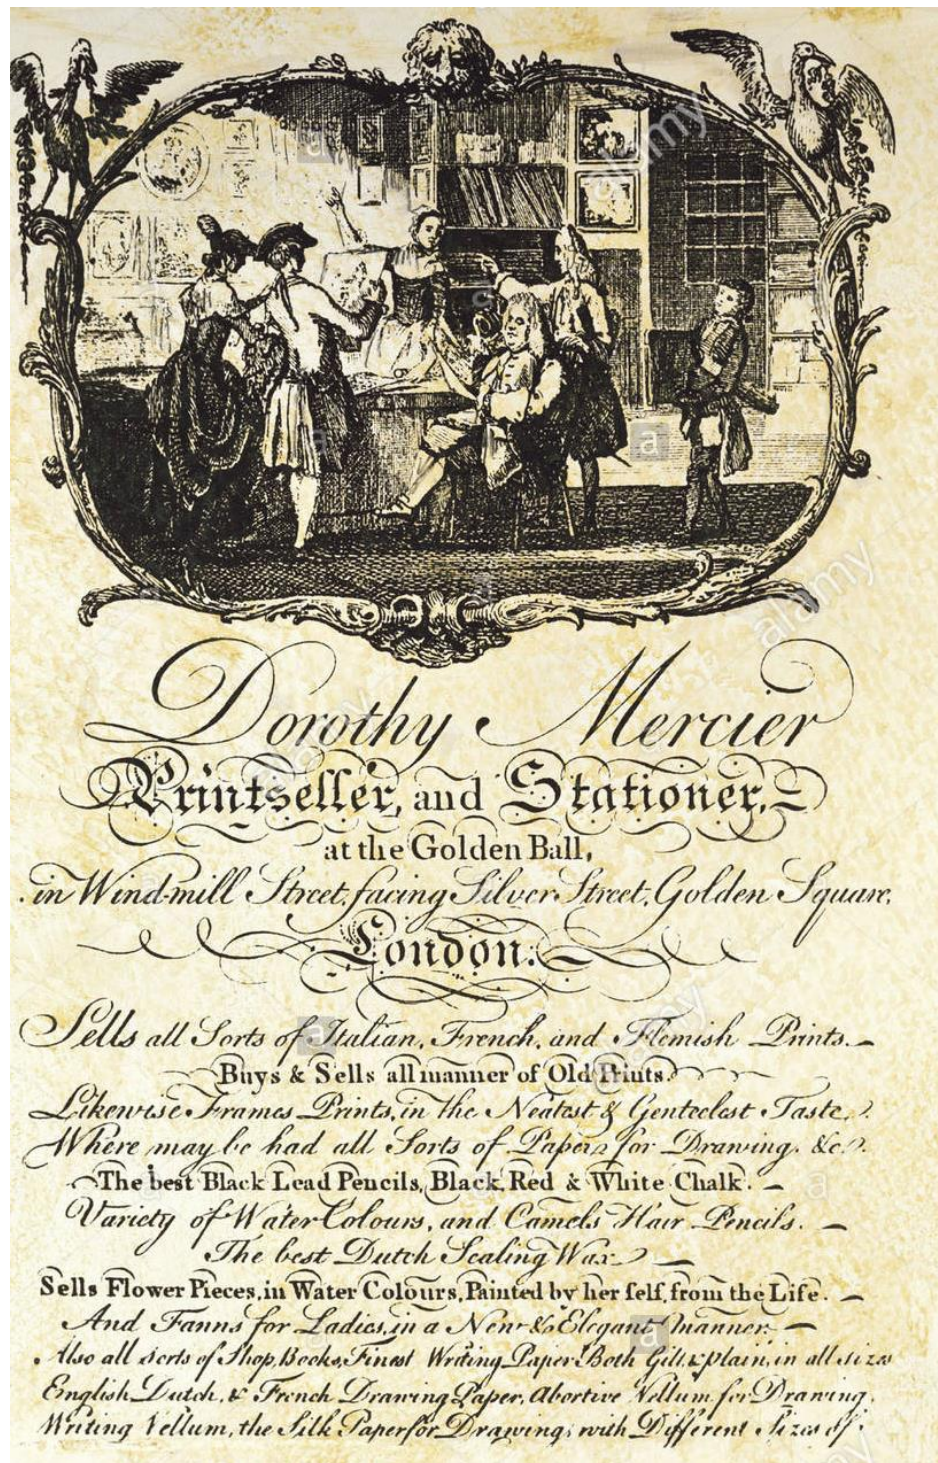 Dorothy Mercier
Printseller, and Stationer,
at the Golden Ball,
in Wind-mill Street, facing Silver Street, Golden Square,
London.
Sells all Sorts of Italian, French, and Flemish Prints.
Buys & Sells all manner of Old Prints.
Likewise Frames Prints, in the Neatest & Genteelest Taste.
Where may be had all Sorts of Papers for Drawing, &c.
The best Black Lead Pencils, Black, Red & White Chalk.
Variety of Water Colours, and Camels Hair Pencils.
The best Dutch Sealing Wax
Sells Flower Pieces, in Water Colours, Painted by her self, from the Life.
And Fanns for Ladies, in a New & Elegant Manner.
Also all sorts of Shop, Books, Finest Writing Paper Both Gilt, & plain, in all sizes
English Dutch, & French Drawing Paper, Abortive Vellum for Drawing,
Writing Vellum, the Silk Paper for Drawing, with Different Sizes of
alamy
alamy
alamy
alamy
a
a
a
a